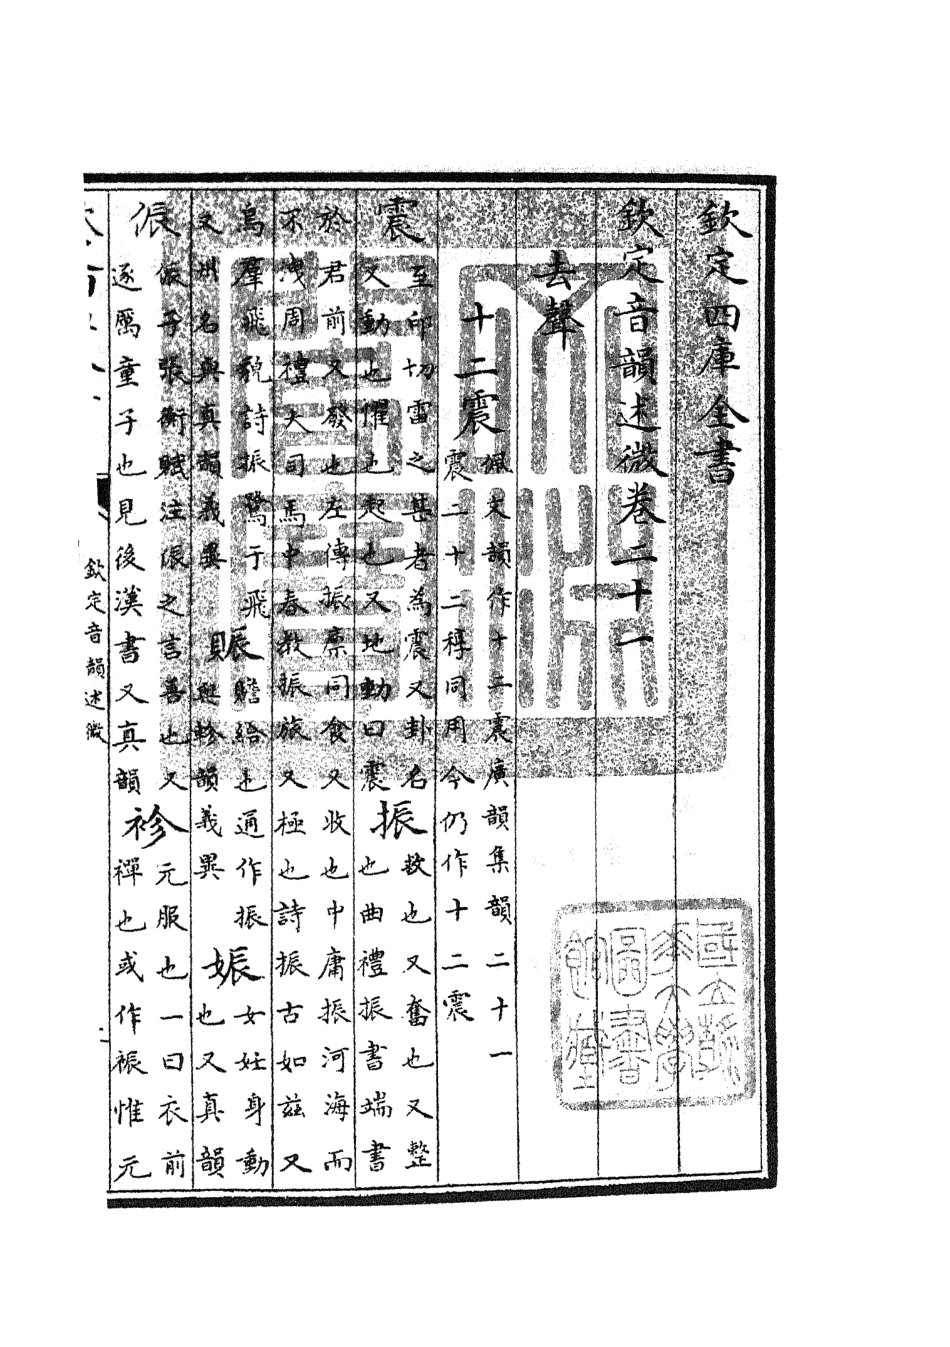 欽定四庫全書
欽定音韻述微卷二十一
去聲
十二震佩文韻作十二震廣韻集韻二十一
震二十二稕同用今仍作十二震
震至印切雷之甚者為震又卦名
又動也懼也起也又地動曰震
振救也又奮也又整
也曲禮振書端書
於君前又發也左傳振廪同食又收也中庸振河海而
不洩周禮大司馬中春教振旅又極也詩振古如兹又
鳥羣飛貌詩振鷺于飛
又州名與真韻義異
賑贍給也通作振
與軫韻義異
娠女妊身動
也又真韻
侲侲子張衡賦注侲之言善也又
逐厲童子也見後漢書又真韻
袗元服也一曰衣前
襌也或作裖惟元
欽定音韻述微
國立清華大學圖書館藏